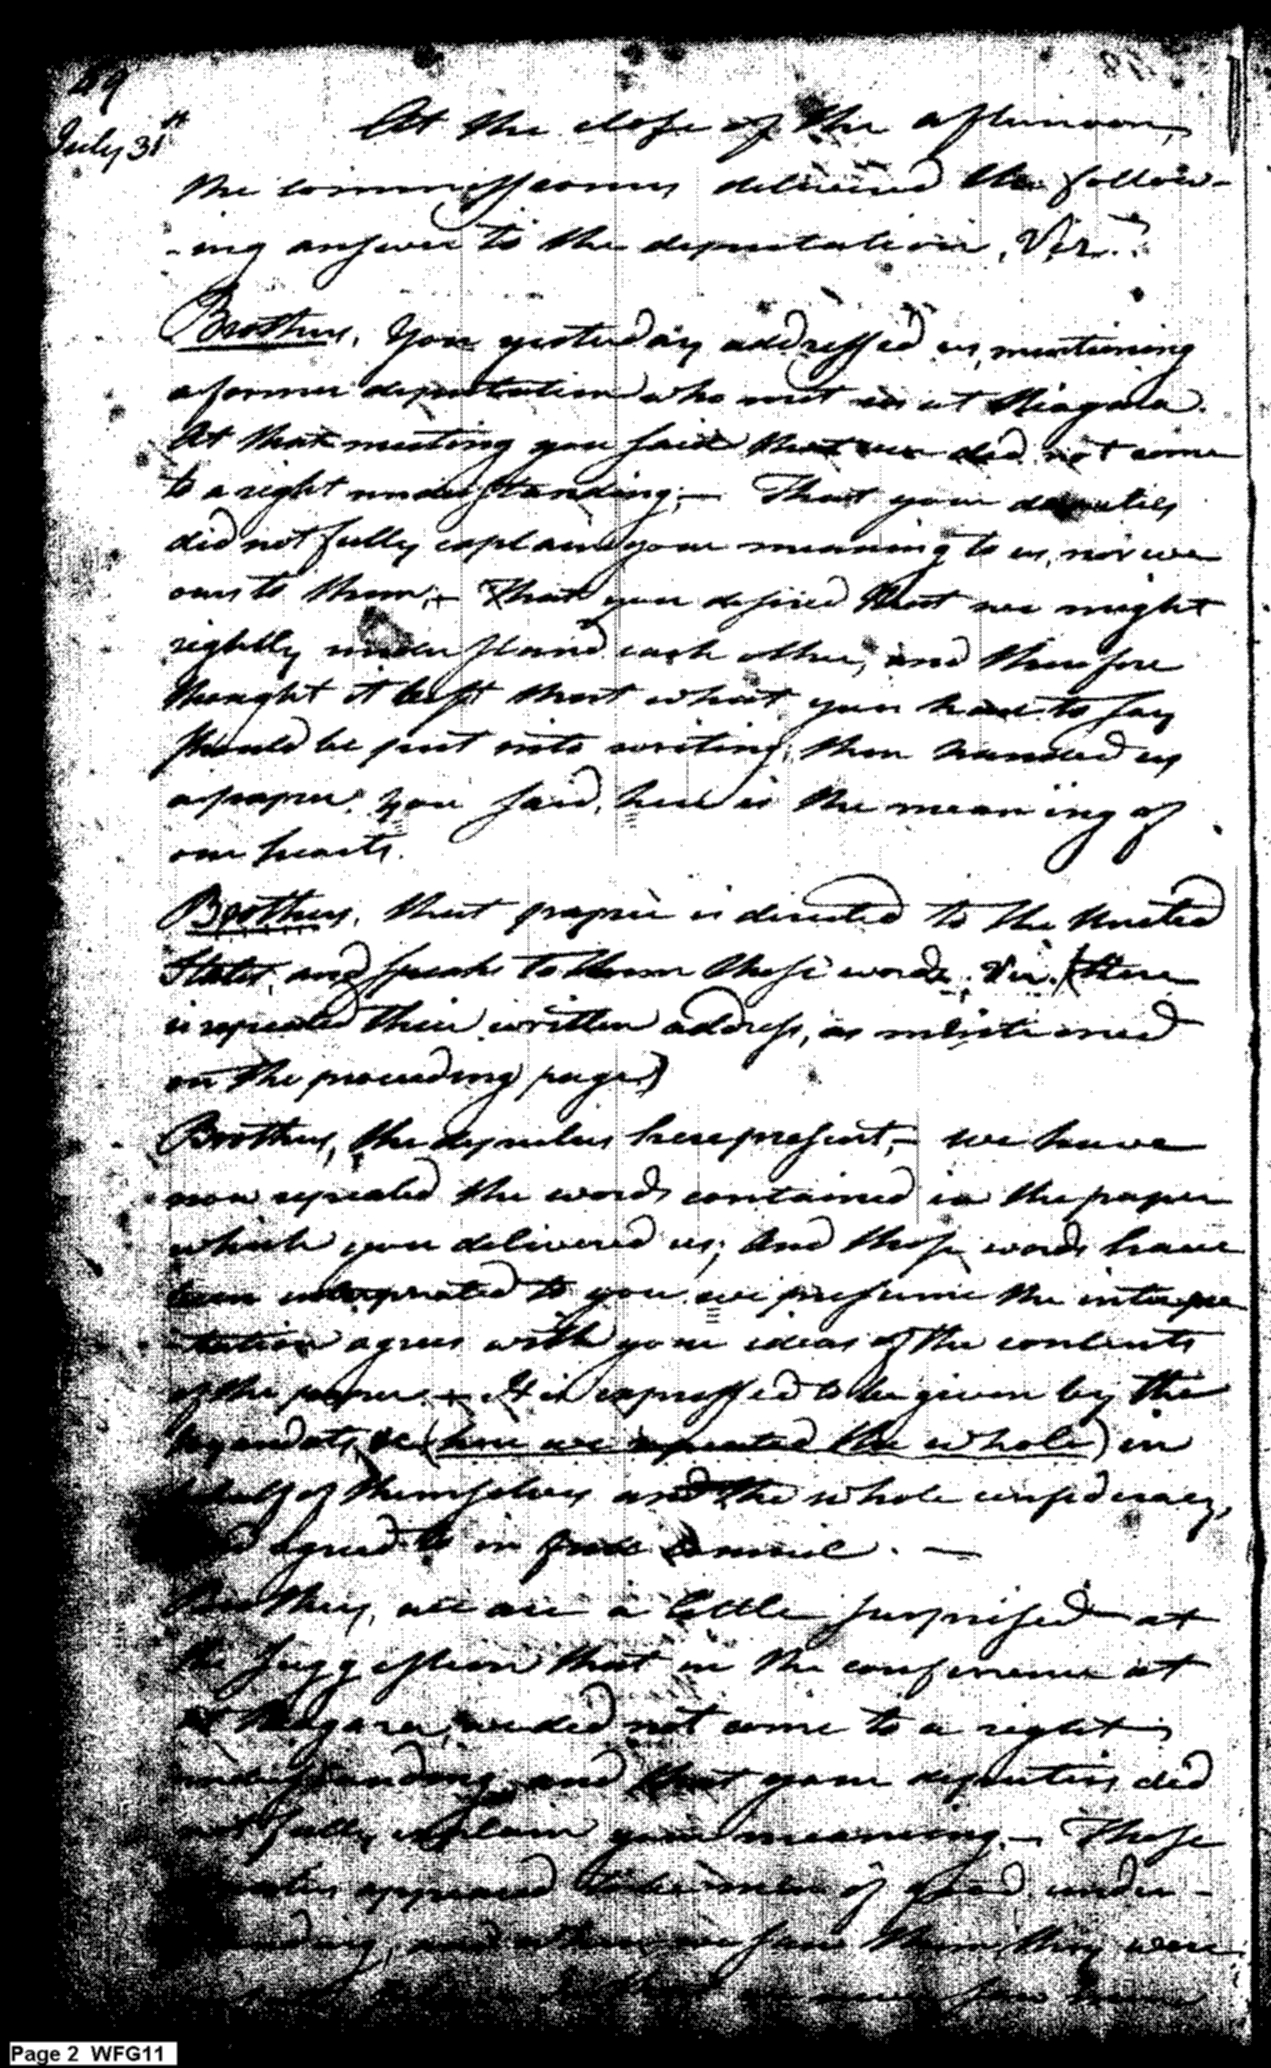 49
July 31st
At the close of the afternoon,
the commissioners delivered the follow-
-ing answer to the deputation, Viz.
Brothers, You yesterday addressed us, mentioning
a former deputation who met us at Niagara.
At that meeting you said that we did not come
to a right understanding;— That your deputies
did not fully explain your meaning to us, nor we
ours to them;— That you desired that we might
rightly understand each other, and therefore
thought it best that what you had to say
should be put into writing, then handed us
a paper. You said, here is the meaning of
our hearts.
Brothers, that paper is directed to the United
States, and speaks to them these words. Viz. (there
is repeated their written address, as mentioned
on the preceeding page)
Brothers, the deputies here present,— we have
now repeated the words contained in the paper
which you delivered us; And those words have
been interpreted to you. we presume the interpre
-tation agrees with your ideas of the contents
of the paper.— It is expressed to be given by the
Wyandots, &c (here we repeated the whole) in
behalf of themselves and the whole confederacy,
and agreed to in full Council. —
Brothers, we are a little surprised at
the suggestion that in the conference at
at Niagara, we did not come to a right
understanding, and that your deputies did
not fully explain your meaning.— Those
deputies appeared to be men of good under-
-standing, and when we saw them they were